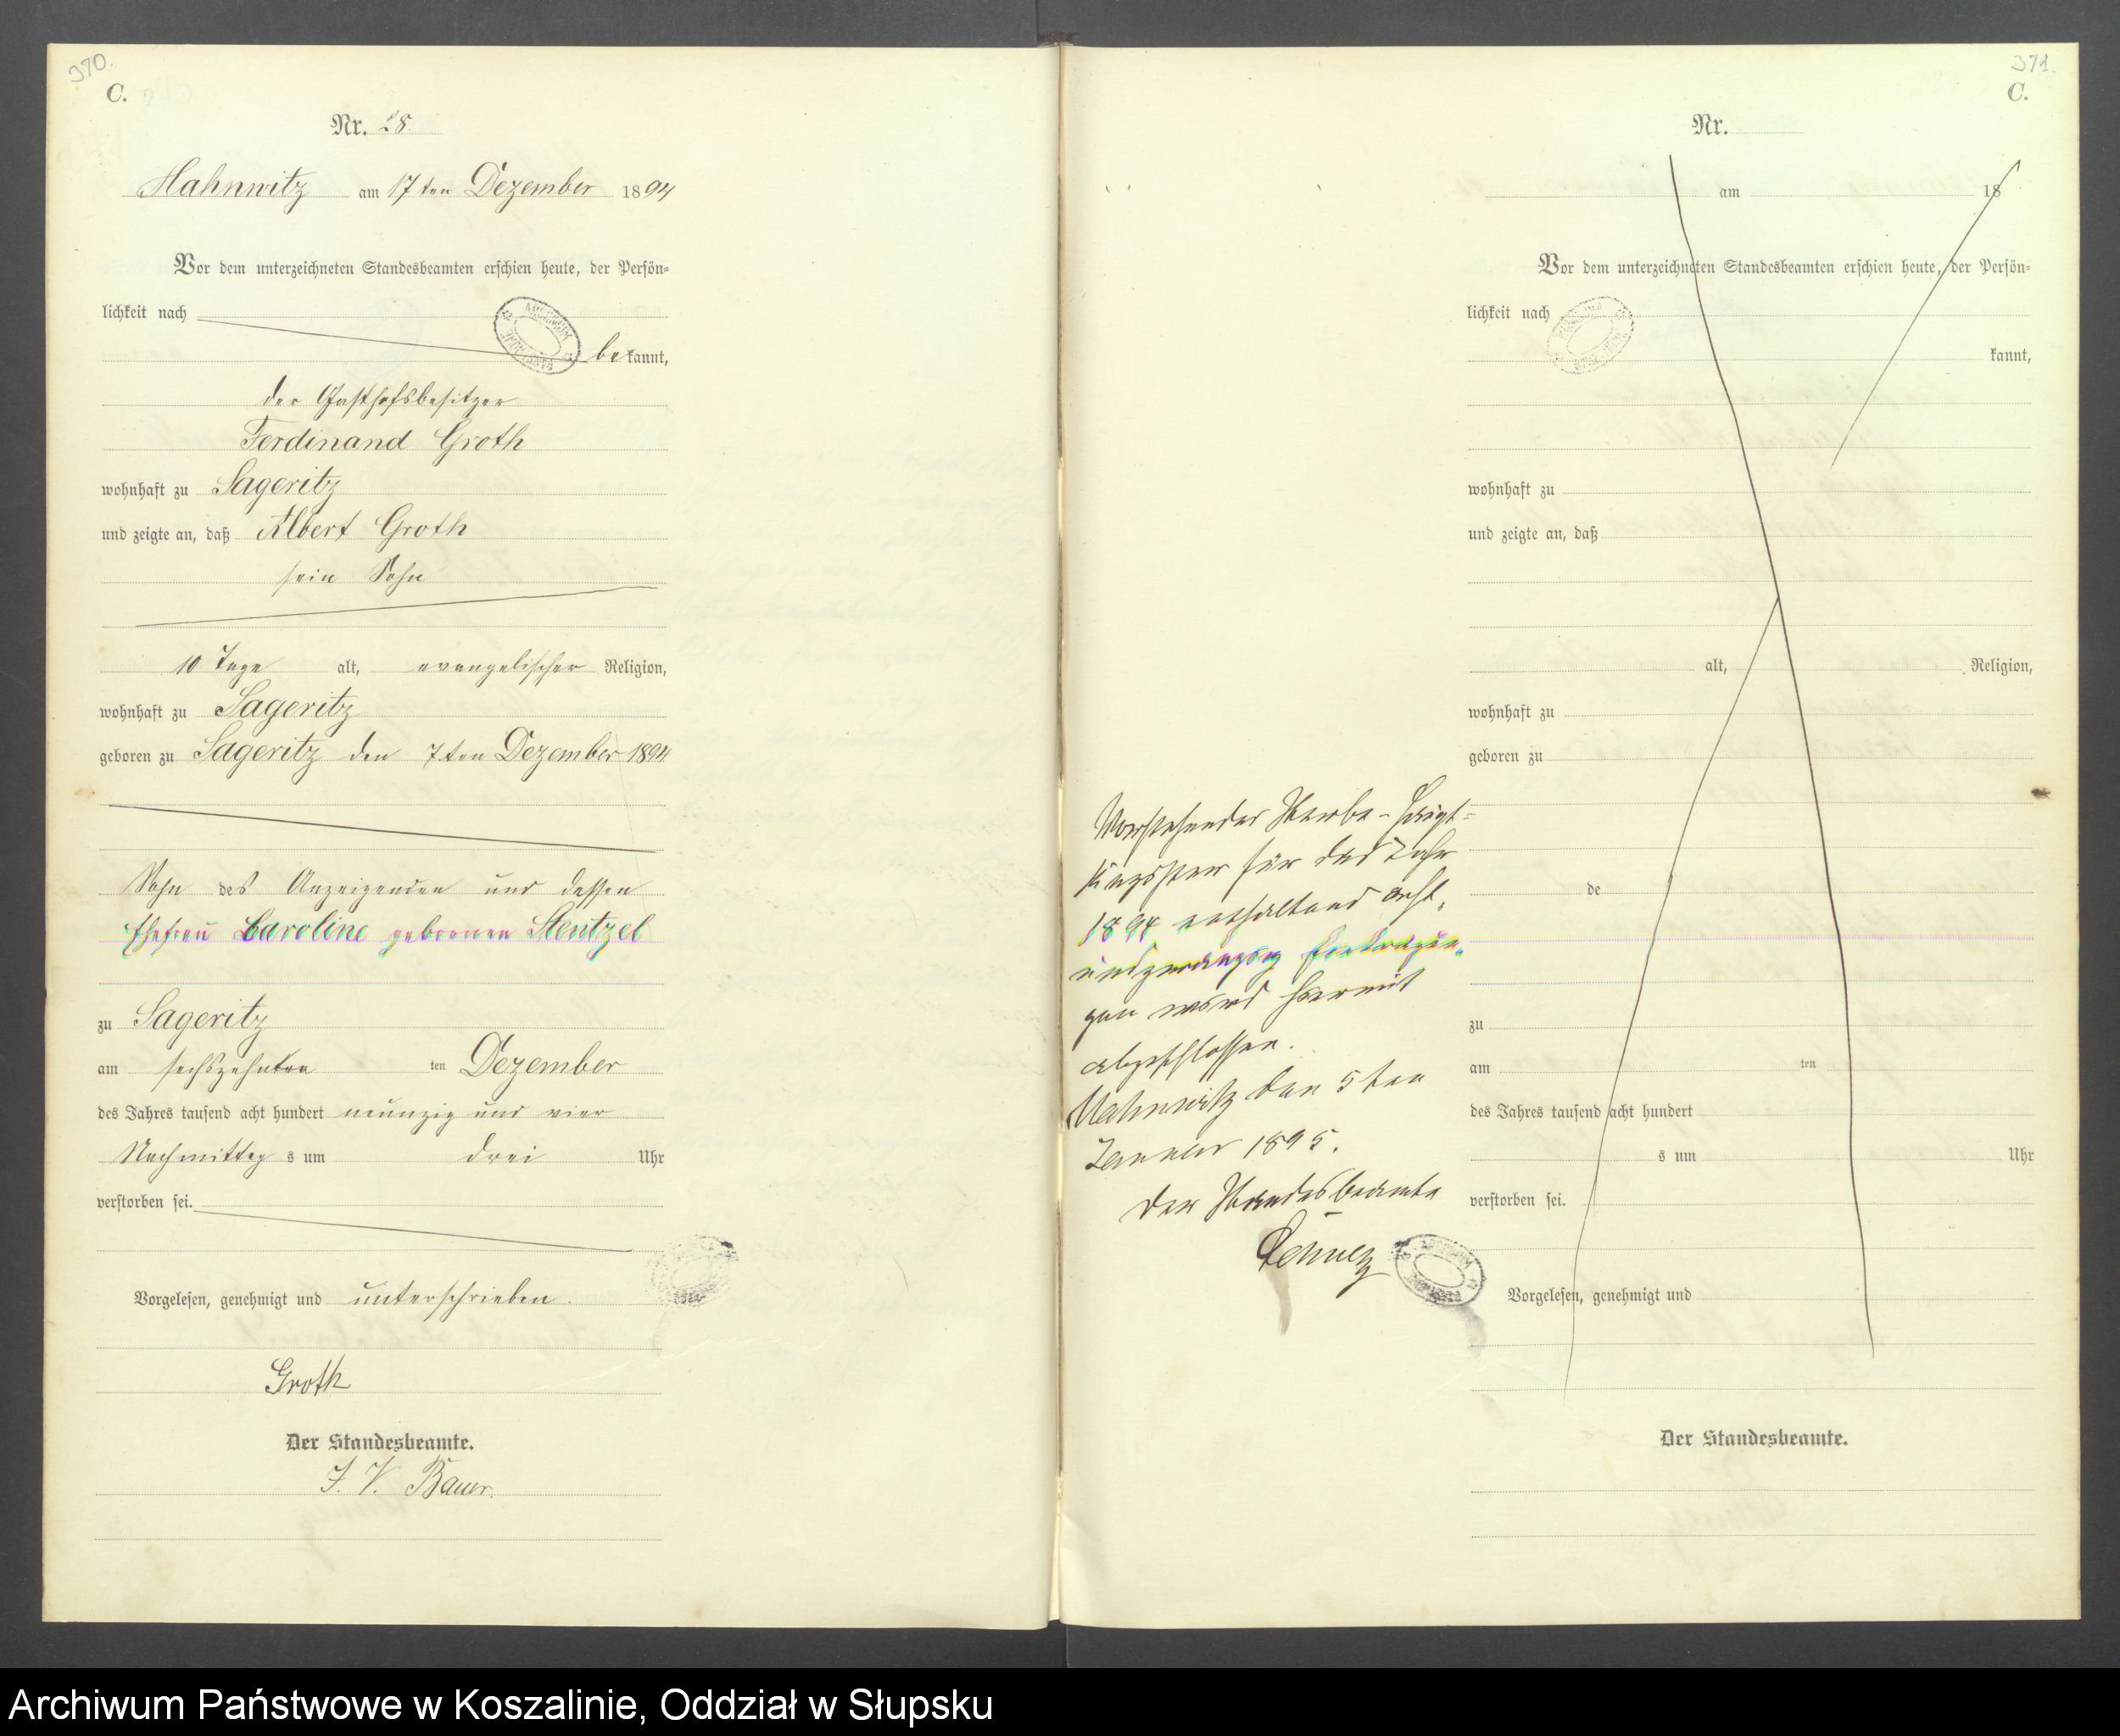 370.
C.
Nr. 28.
Hahnwitz am 17ten Dezember 1894
Vor dem unterzeichneten Standesbeamten erschien heute, der Persön-
lichkeit nach
bekannt,
der Gasthofsbesitzer
Ferdinand Groth
wohnhaft zu Sageritz
und zeigte an, daß Albert Groth
sein Sohn
10 Tage alt, evangelischer Religion,
wohnhaft zu Sageritz
geboren zu Sageritz den 7ten Dezember 1894
Sohn des Anzeigenden und dessen
Ehefrau Caroline gebornen Stentzel
zu Sageritz
am sechszehnten ten Dezember
des Jahres tausend acht hundert neunzig und vier
Nachmittag s um drei Uhr
verstorben sei.
Vorgelesen, genehmigt und unterschrieben.
Groth
Der Standesbeamte.
J. V. Bauer.
371.
C.
Nr.
am 18
Vor dem unterzeichneten Standesbeamten erschien heute, der Persön-
lichkeit nach
kannt,
wohnhaft zu
und zeigte an, daß
alt, Religion,
wohnhaft zu
geboren zu
de
zu
am ten
des Jahres tausend acht hundert
s um Uhr
verstorben sei.
Vorgelesen, genehmigt und
Der Standesbeamte.
Vorstehendes Sterbe-Haupt-
Register für das Jahr
1894 enthaltend acht
undzwanzig Eintragun-
gen wird hiermit
abgeschlossen.
Hahnwitz den 5ten
Januar 1895.
Der Standesbeamte
Archiwum Państwowe w Koszalinie, Oddział w Słupsku